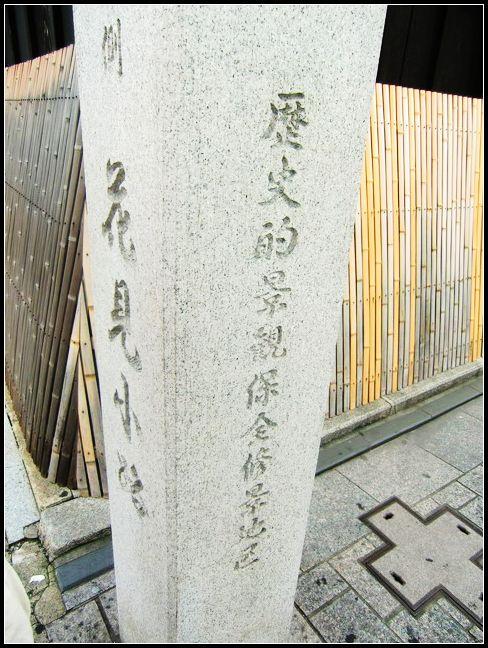 歴史的景観保全修景地区
側
花見小路